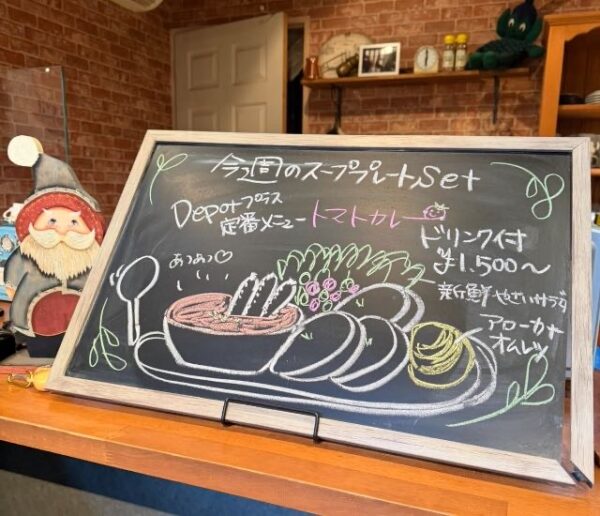 今週のスーププレートSet
Depotプラス
定番メニュー トマトカレー
ドリンク付
¥1,500〜
あつあつ♡
新鮮やさいサラダ
アローカナ
オムレツ